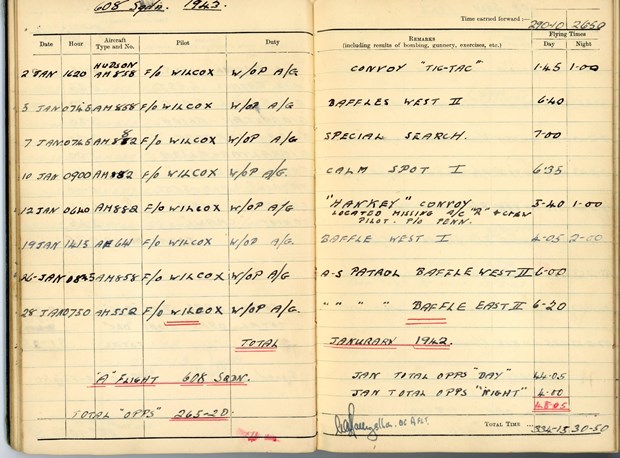 608 Sqdn. 1942.
Date Hour Aircraft Type and No. Pilot Duty
2 JAN 1620 HUDSON AM 858 F/O WILCOX W/OP A/G
5 JAN 0745 AM 858 F/O WILCOX W/OP A/G
7 JAN 0745 F/O WILCOX W/OP A/G
10 JAN 0900 F/O WILCOX W/OP A/G.
12 JAN 0640 F/O WILCOX W/OP A/G
19 JAN 1415 F/O WILCOX W/OP A/G.
26 JAN AM 858 F/O WILCOX W/OP A/G
28 JAN 0750 F/O WILCOX W/OP A/G.
TOTAL
"A" FLIGHT 608 SQDN.
TOTAL "OPPS" 265-20.
Time carried forward:— 290-10 26-50
REMARKS Flying Times
(including results of bombing, gunnery, exercises, etc.) Day Night
CONVOY "TIG-TAC" 1-45 1-00
BAFFLES WEST II 6-40
SPECIAL SEARCH. 7-00
CALM SPOT I 6-35
"HANKEY" CONVOY 3-40 1-00
LOCATED MISSING A/C "R" & CREW
PILOT. P/O PENN.
BAFFLE WEST I 4-05 2-00
A-S PATROL BAFFLE WEST II 6-00
" " " BAFFLE EAST II 6-20
JANURARY 1942.
JAN TOTAL OPPS "DAY" 44-05
JAN TOTAL OPPS "NIGHT" 4-00
48-05
TOTAL TIME ... 334-15 30-50